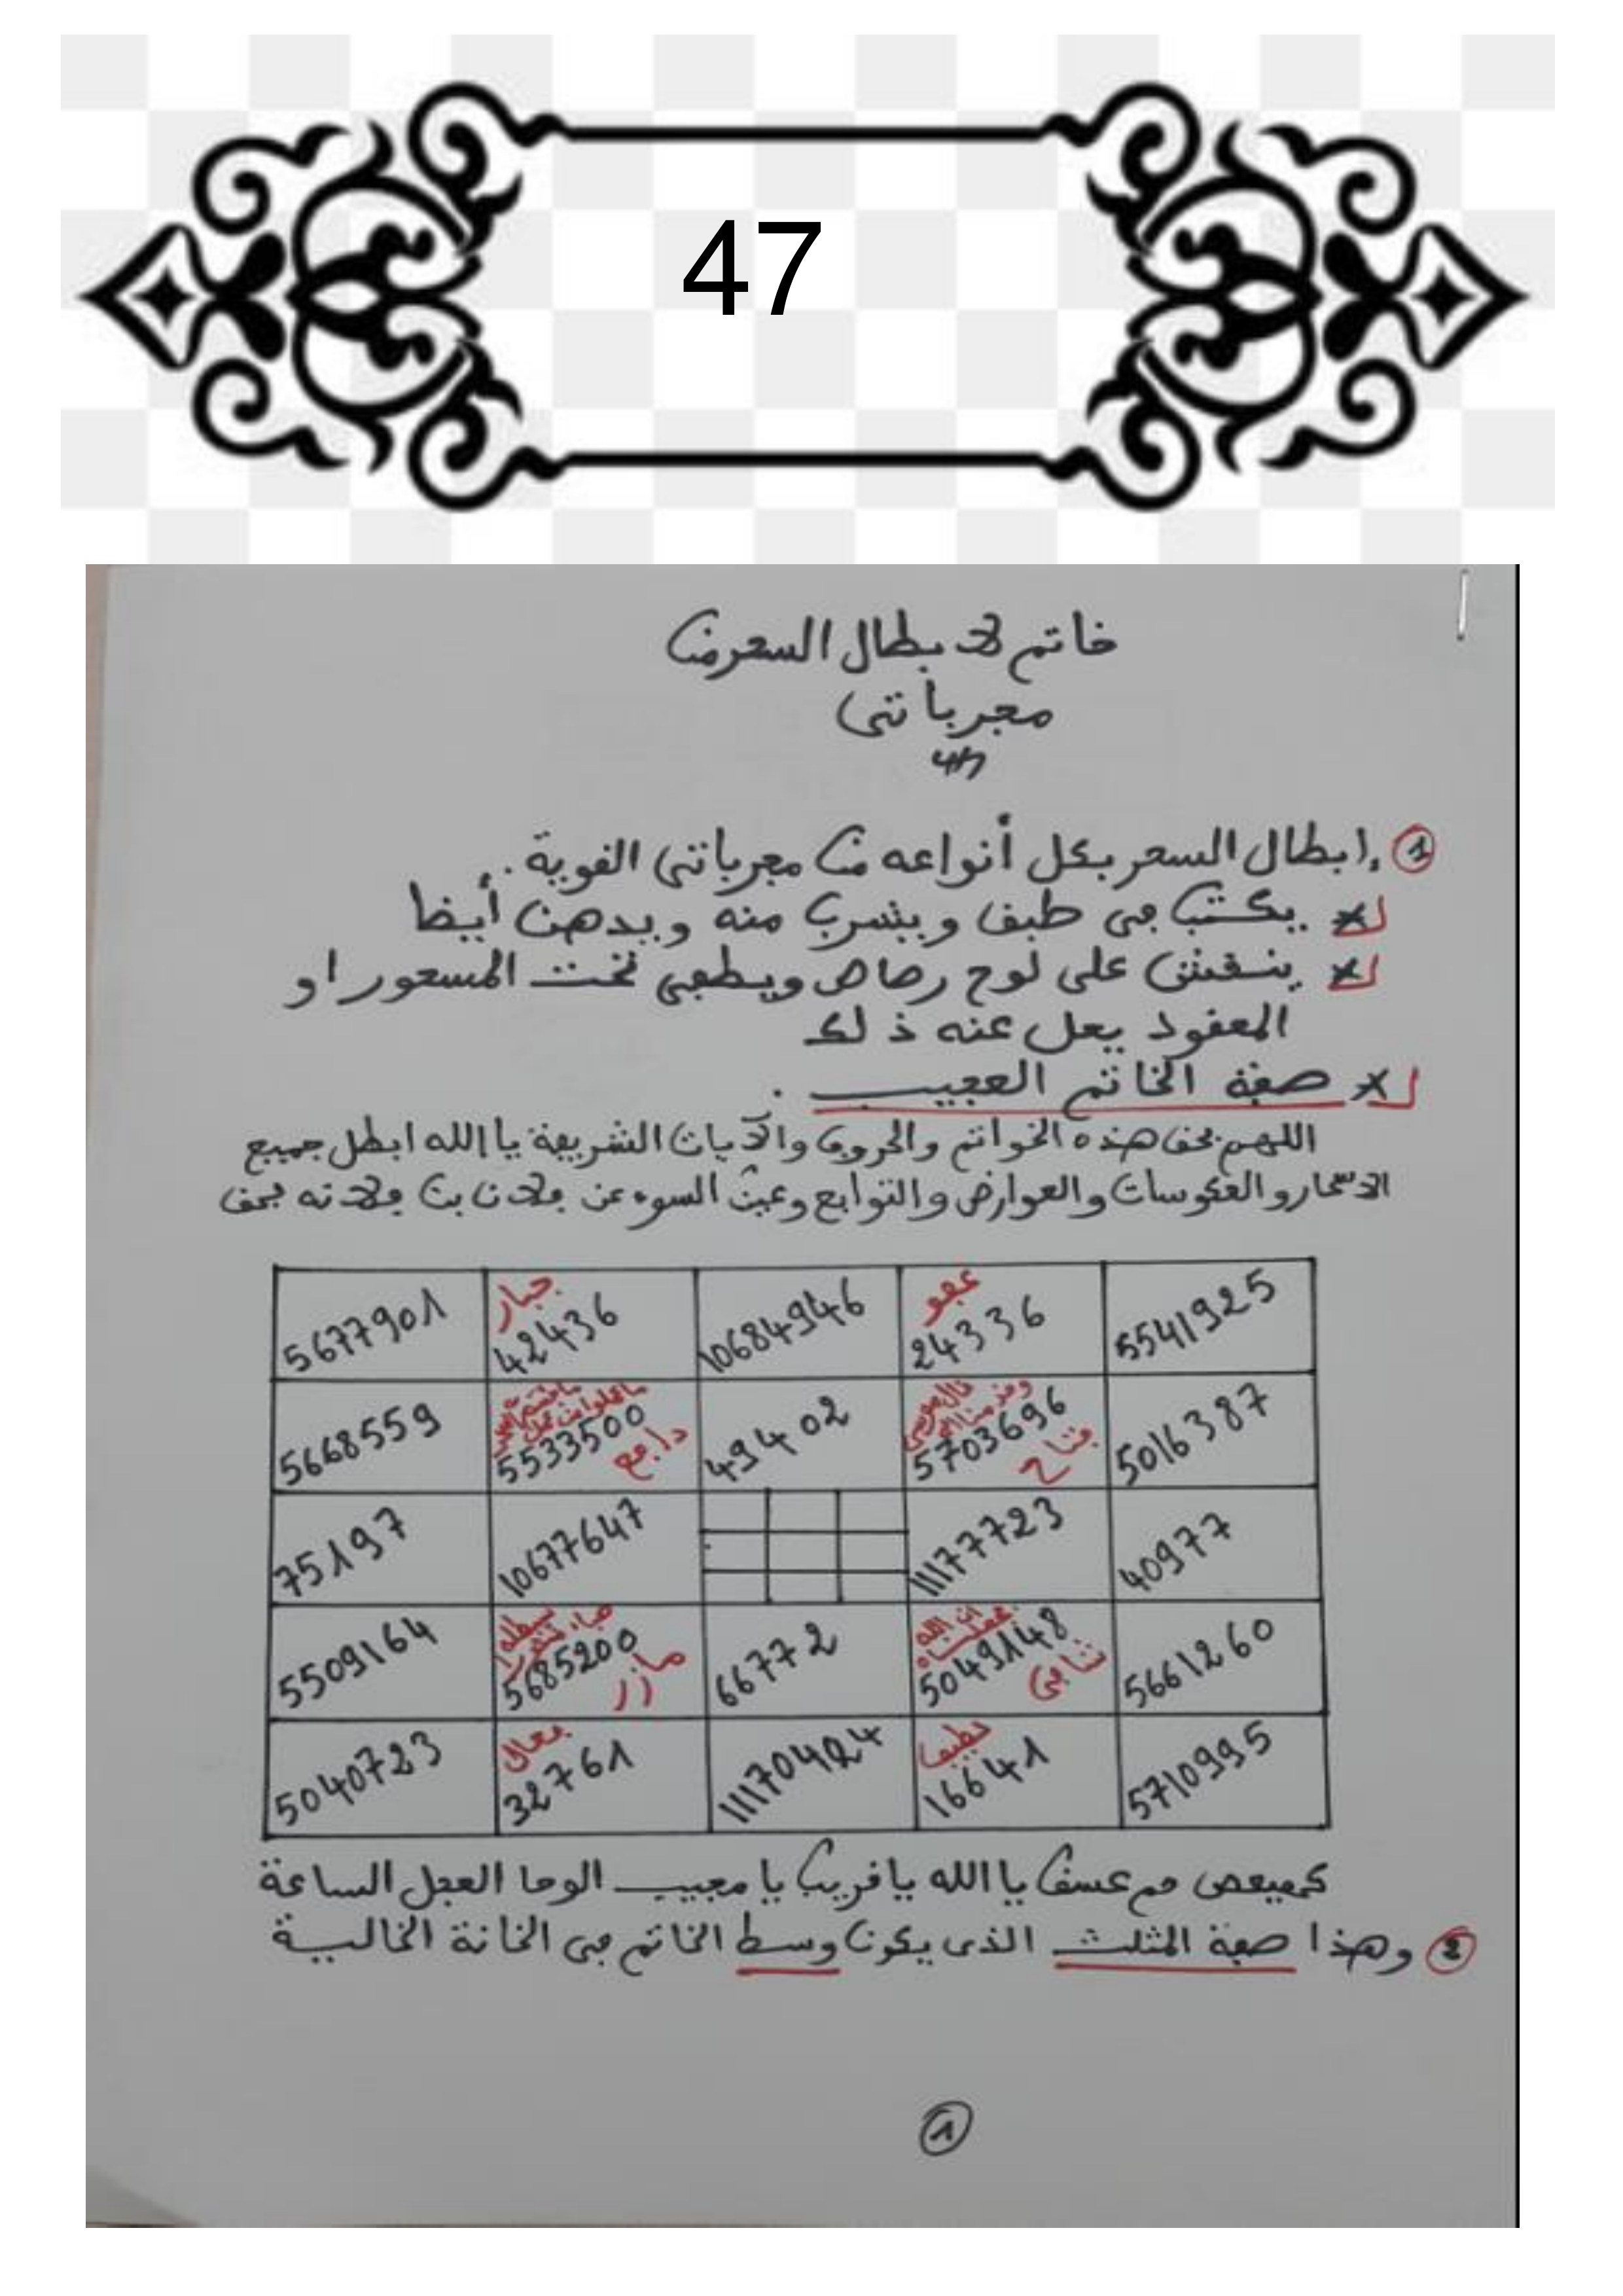 47
خاتم لابطال السحر من
مجرباتي
① إبطال السحر بكل أنواعه من مجرباتي القوية..
* يكتب في طبق ويشرب منه ويدهن أيضا
* ينقش على لوح رصاص ويطفى تحت المسحور او
المعقود يحل عنه ذلك
* صفة الخاتم العجيب .
اللهم بحق هذه الخواتم والحروف والآيات الشريفة يا الله ابطل جميع
الاسحار والعكوسات والعوارض والتوابع وعين السوء عن فلان بن فلانه بحق
5677901 جبار 42436 10684946 عفو 24336 5541925
5668559 5533500 دافع 49402 قال موسى 5703696 فتاح 5016387
75197 10677647 11177723 40977
5509164 5685200 66772 ان الله 5049148 شافي 5661260
5040723 فعال 32761 11170424 لطيف 16641 5710995
كهيعص حم عسق يا الله يا قريب يا مجيب الوحا العجل الساعة
② وهذا صفة المثلث الذي يكون وسط الخاتم في الخانة الخالية
①